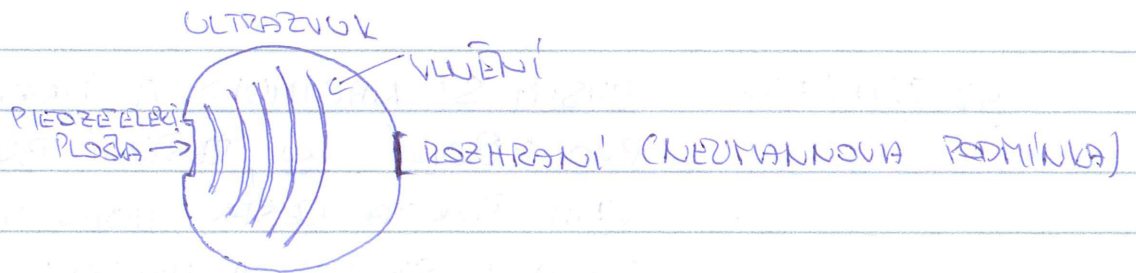 ULTRAZVUK
VLNĚNÍ
PIEOZEELEKT.
PLOŠKA
ROZHRANÍ (NEUMANNOVA PODMÍNKA)